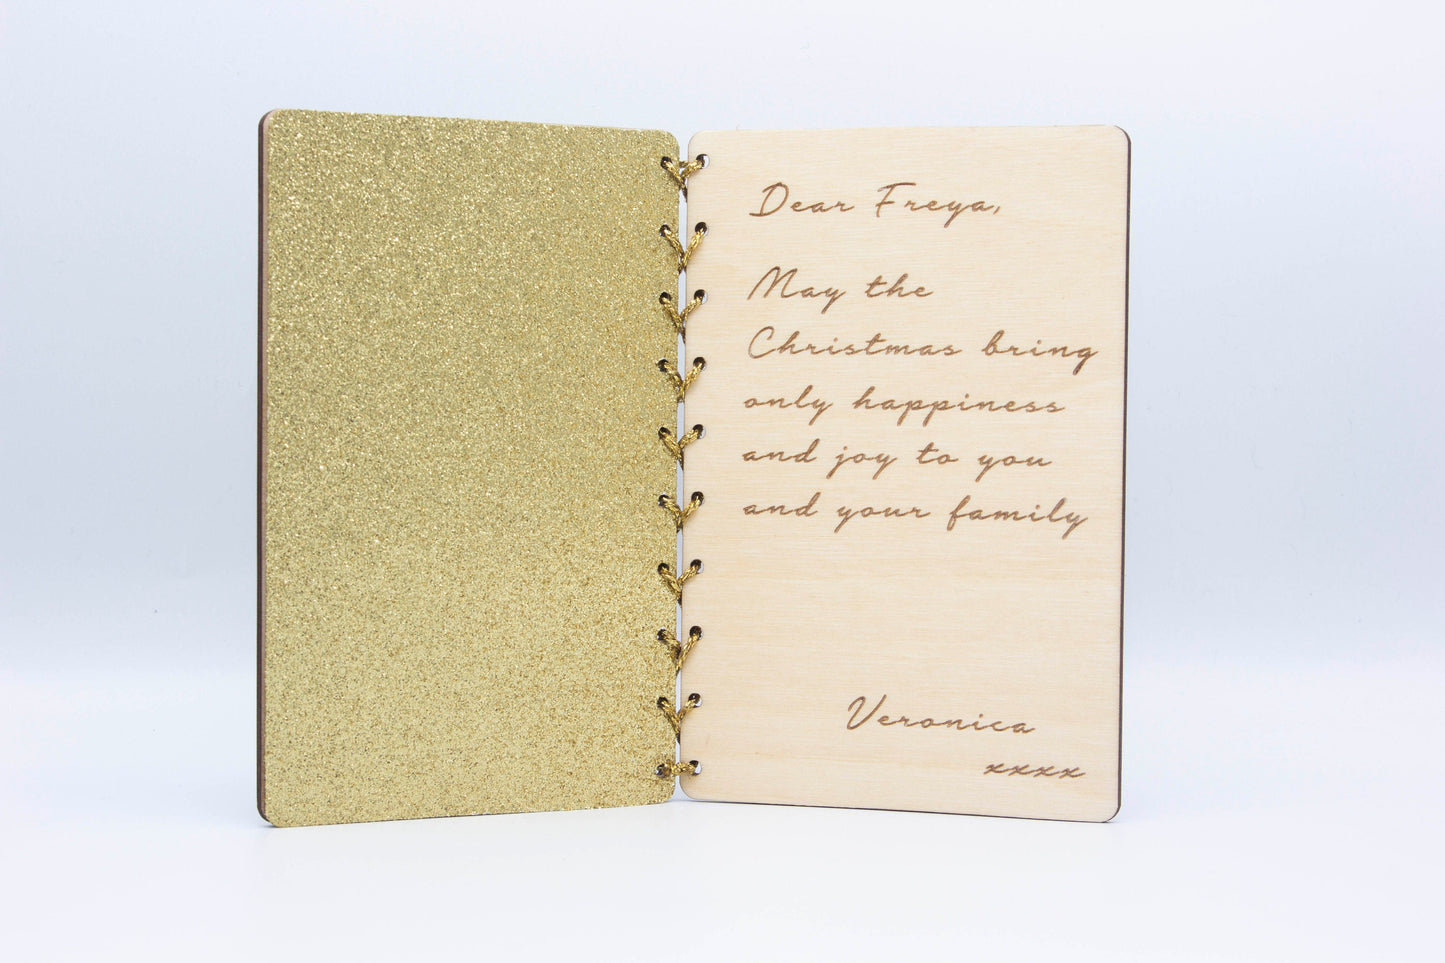 Dear Freya,
May the
Christmas bring
only happiness
and joy to you
and your family
Veronica
xxxx